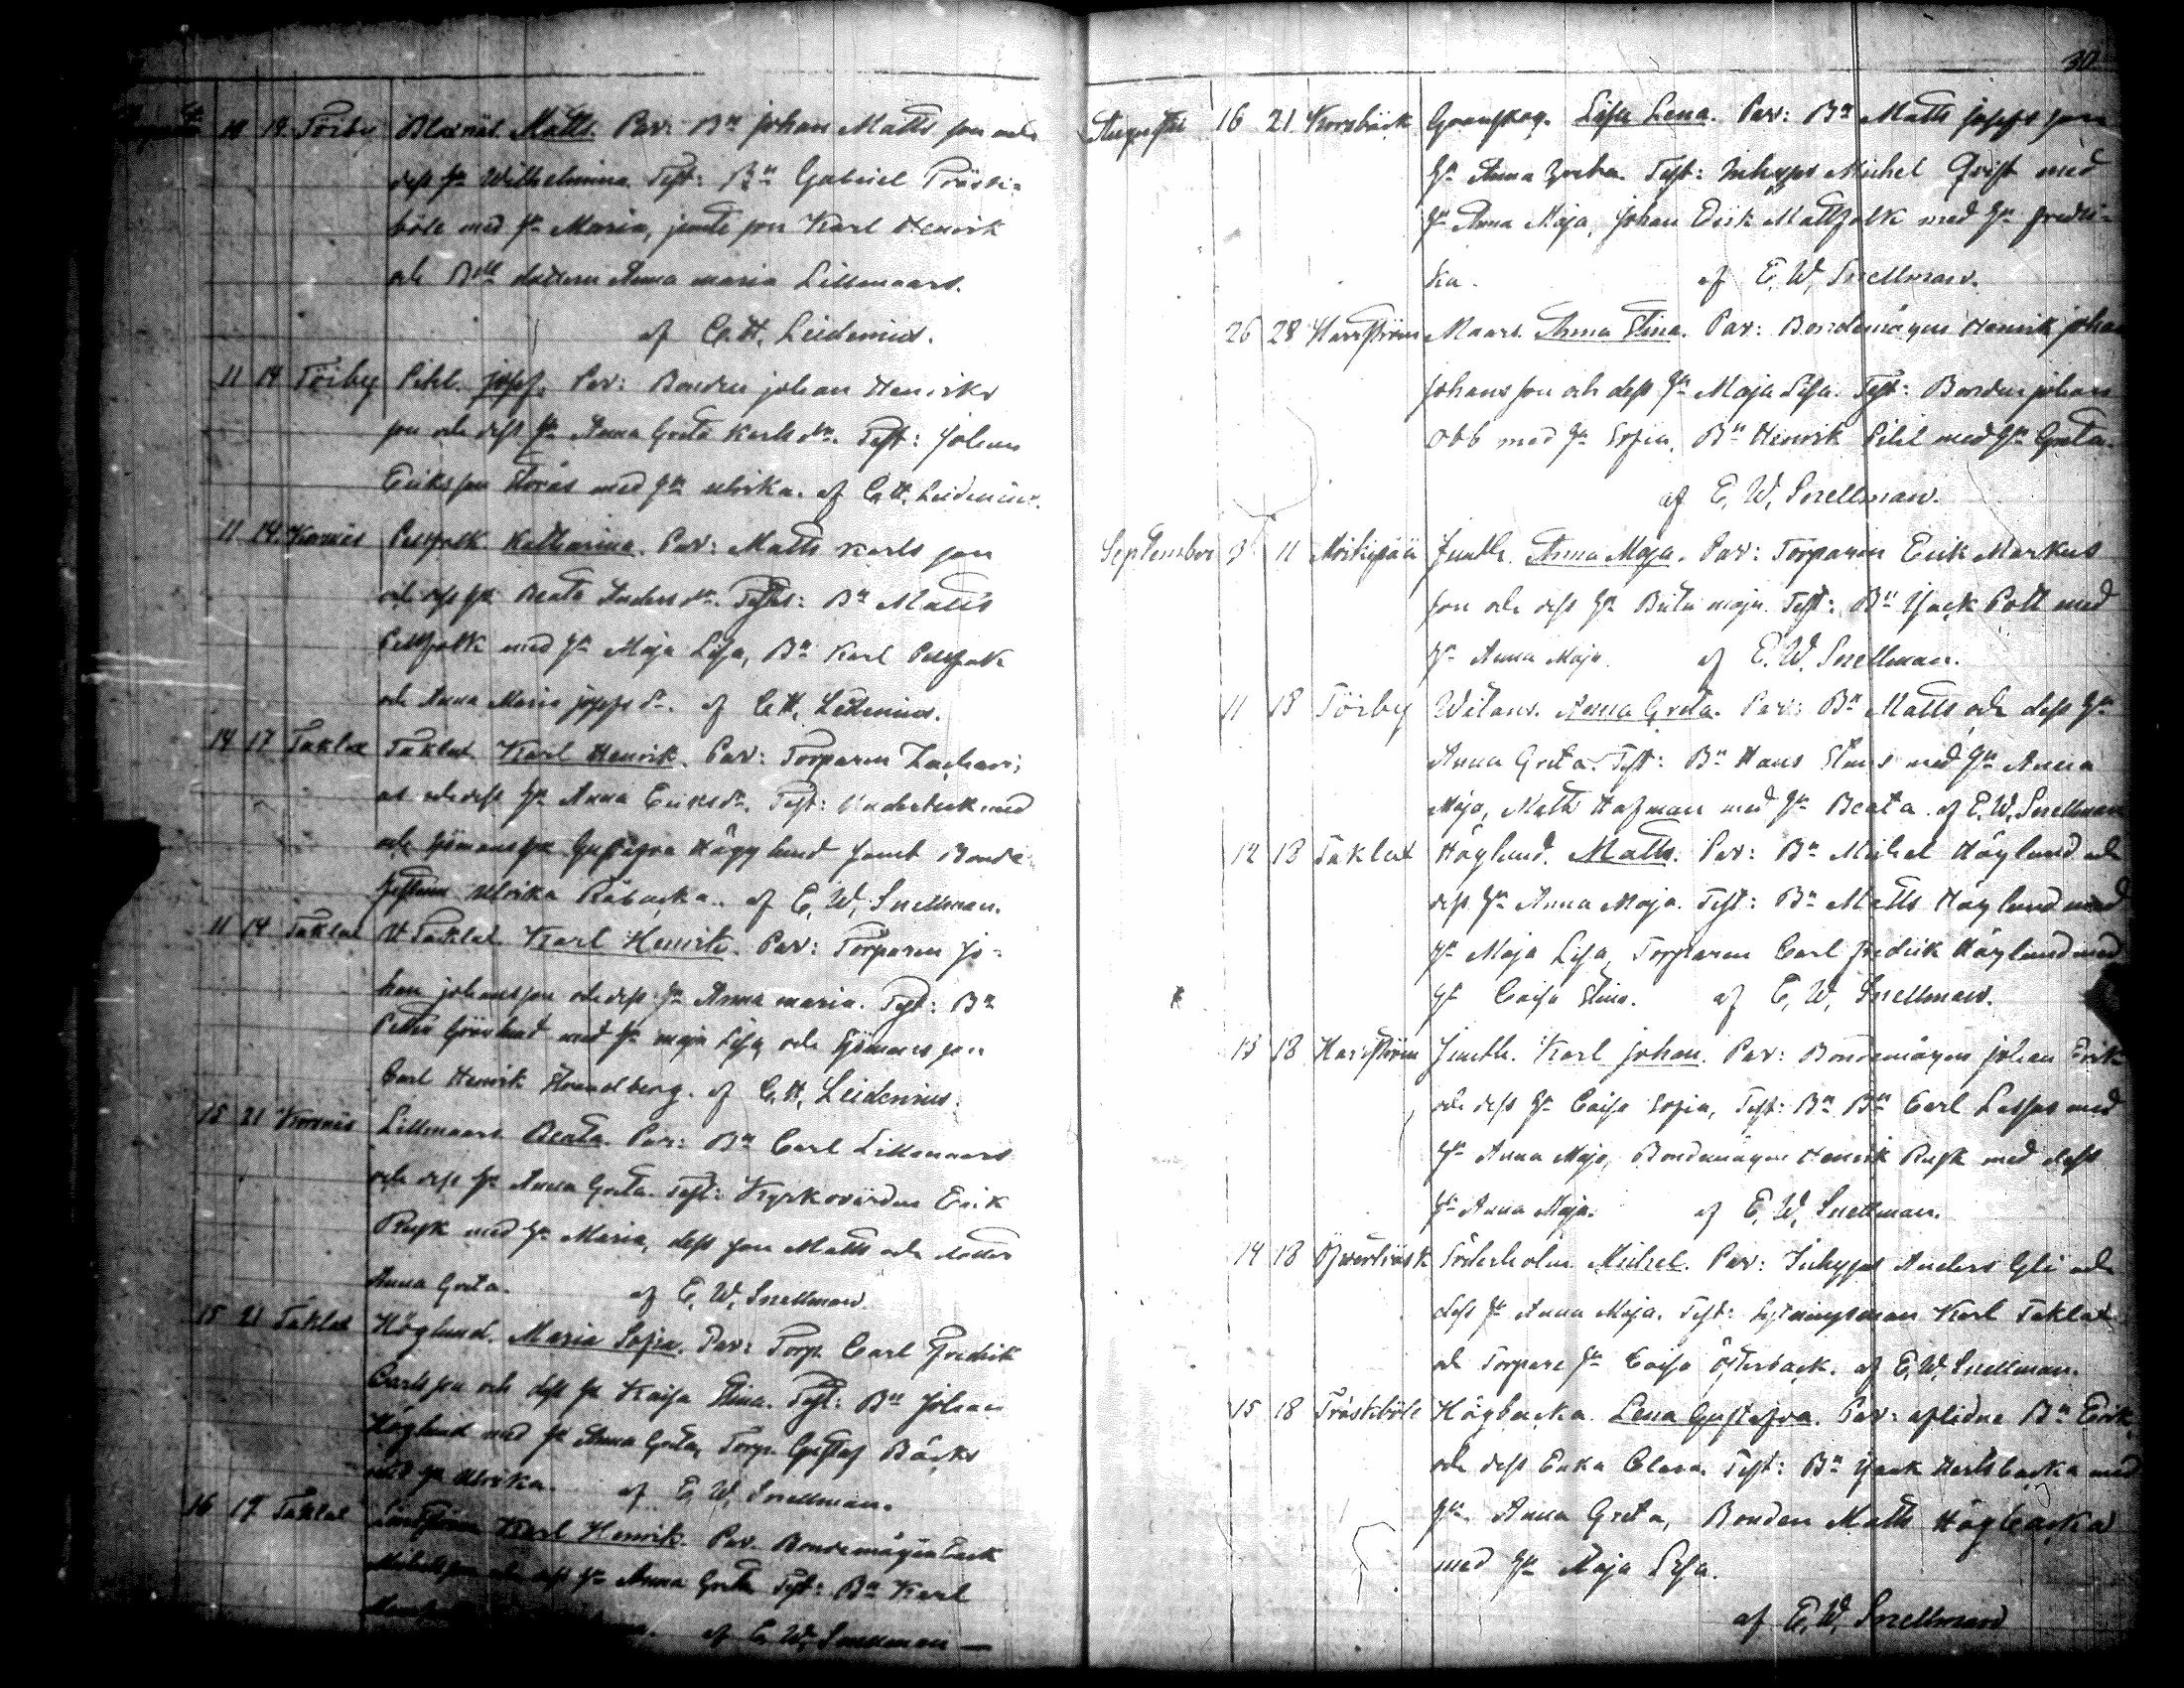 10 14 Töiby Blaxnäs. Matts. Par: Bn Johan Matts son och
dess Hu Wilhelmina. Test: Bn Gabriel Träski-
böle med Hu Maria, jemte son Karl Henrik
och dottern Anna Maria Lillmaars.
af C. H. Leidenius.
11 14 Töiby Pihl. Josef. Par: Bonden Johan Henriks
son och dess Hu Anna Greta Karls dr. Test: Johan
Eriksson Storås med Hu Ulrika. af C. H. Leidenius.
11 14 Korsnäs Pellfolk Katharina. Par: Matts Karls son
och dess Hu Beata Anders dr. Test: Bn Matts
Pellfolk med Hu Maja Lisa, Bn Karl Pellfolk
och Anna Maria Josefs dr. af C. H. Leidenius.
14 17 Taklax Taklax Karl Henrik. Par: Torparen Zachari-
as och dess Hu Anna Eriks dr. Test: med
och Sjömans Hu Gustafva Högglund samt Bonde-
Ulrika Råbacka. af E. W. Snellman.
11 14 Taklax Taklax Karl Henrik. Par: Torparen Jo-
han Johansson och dess Hu Anna Maria. Test: Bn
Petter Grönlund med Hu Maja Lisa och Sjömans son
Carl Henrik Strandberg. af C. H. Leidenius.
15 21 Korsnäs Lillmaars. Beata. Par: Bn Carl Lillmaars
och dess Hu Anna Greta. Test: Kyrkovärden Erik
Rusk med Hu Maria, dess son Matts och dotter
Anna Greta. af E. W. Snellman.
15 21 Taklax Höglund. Maria Sofia. Par: Torp. Carl Fredrik
Carlsson och dess Hu Kaisa Stina. Test: Bn Johan
Höglund med Hu Anna Greta, Torp. Gustaf Bäcks
med Hu Ulrika. af E. W. Snellman.
16 17 Taklax Karl Henrik. Par. Bondemågen Erik
och dess Hu Anna Greta Test: Bn Karl
af E. W. Snellman
30
Augusti 16 21 Korsbäck Granskog. Lisa Lena. Par: Bn Matts Josefs son
Hu Anna Greta. Test: Inhyses Michel Qvist med
Hu Anna Maja, Johan Erik Mattfolk med Hu Fredri-
ka. af E. W. Snellman.
26 28 Harrström Maars. Anna Stina. Par: Bondemågen Henrik Johan
Johans son och dess Hu Maja Lisa. Test: Bonden Johan
Obb med Hu Sofia, Bn Henrik Pihl med Hu Greta.
af E. W. Snellman.
September 3 11 Moikipää Smith. Anna Maja. Par: Torparen Erik Markus
son och dess Hu Brita Maja. Test: Bn Isack Pott med
Hu Anna Maja. af E. W. Snellman.
11 18 Töiby Witans. Anna Greta. Par: Bn Matts och dess Hu
Anna Greta. Test: Bn Hans Stens med Hu Anna
Maja, Matts Hafman med Hu Beata. af E. W. Snellman
12 18 Taklax Höglund. Matts. Par: Bn Michel Höglund och
dess Hu Anna Maja. Test: Bn Matts Höglund med
Hu Maja Lisa, Torparen Carl Fredrik Höglund med
Hu Caisa Stina. af E. W. Snellman.
13 18 Harrström Smith. Karl Johan. Par: Bondemågen Johan Erik
och dess Hu Caisa Sofia, Test: Bn Bn Carl Lassas med
Hu Anna Maja, Bondemågen Henrik Rusk med dess
Hu Anna Maja. af E. W. Snellman.
14 18 Öfverträsk Söderholm Michel. Par: Inhyses Anders Gli och
dess Hu Anna Maja. Test: Karl Taklax
och Torpare Hu Caisa Österback. af E. W. Snellman.
15 18 Träskböle Högbacka. Lena Gustafva. Par: aflidne Bn Erik
och dess Enka Clara. Test: Bn Isack Hertsbacka med
Hu Anna Greta, Bonden Matts Högbacka
med Hu Maja Lisa.
af E. W. Snellman